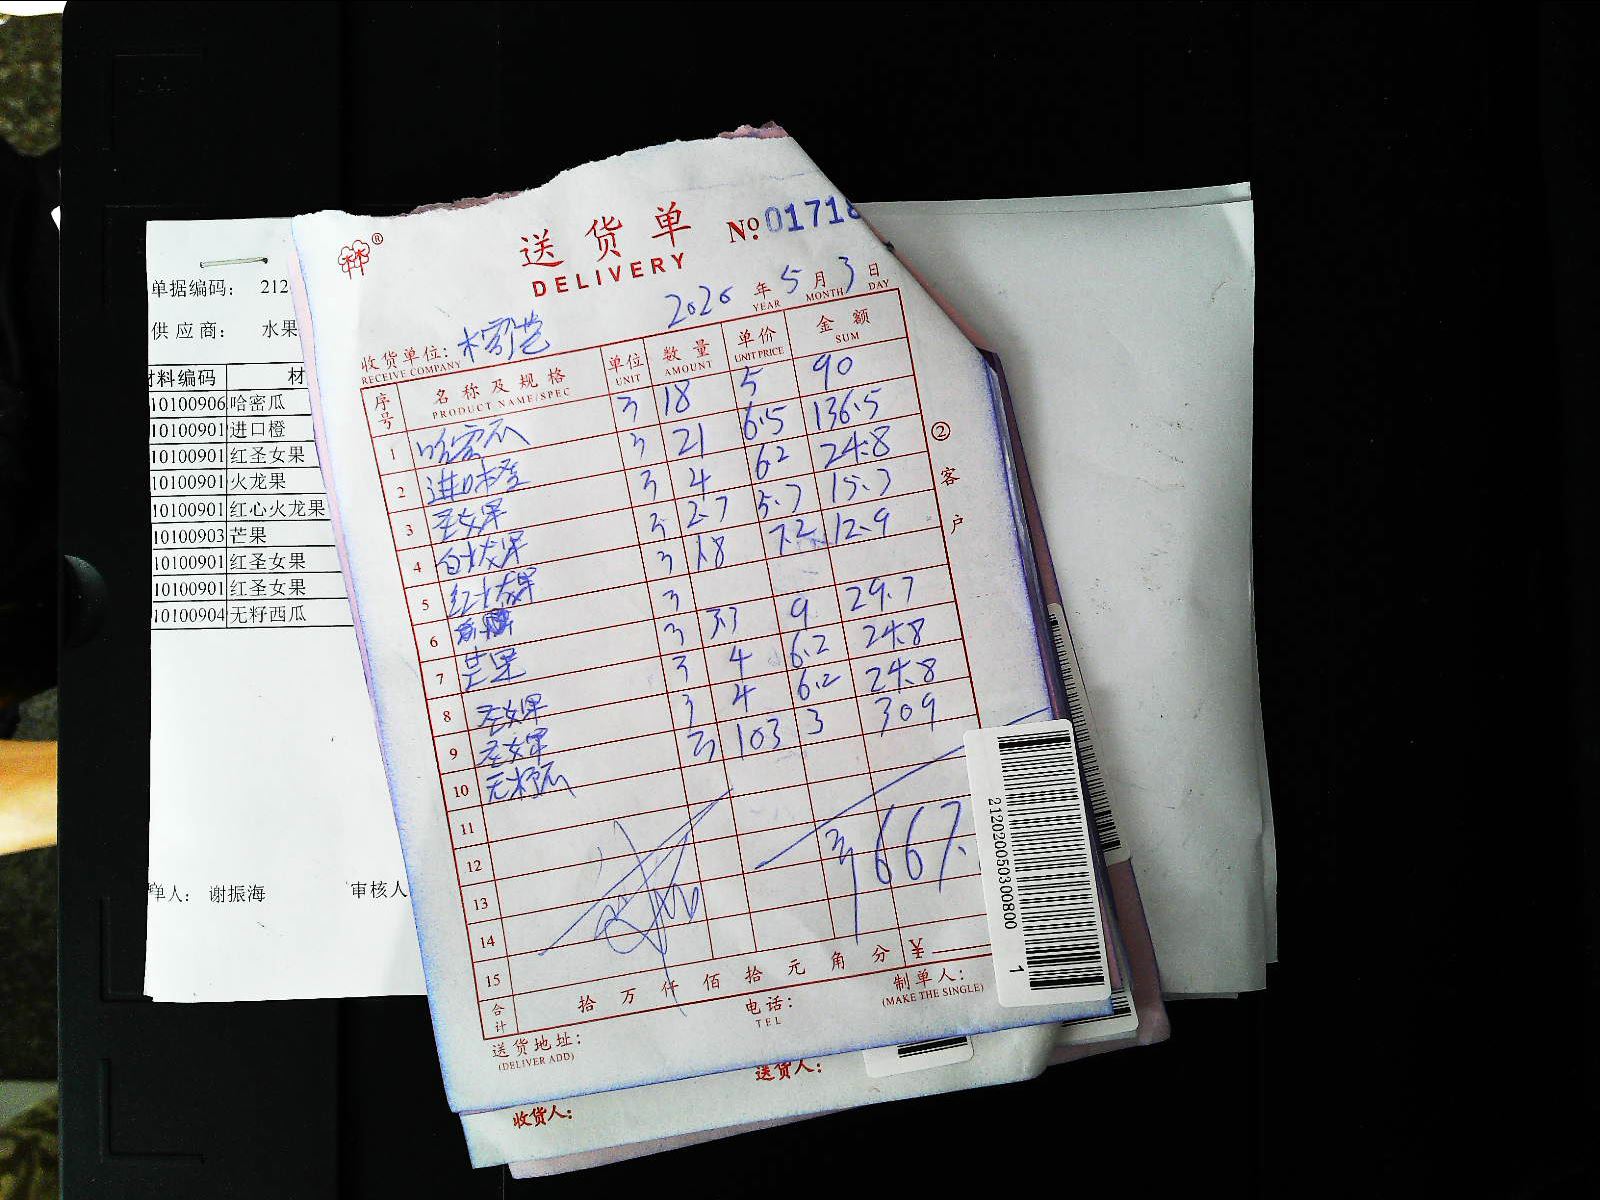 单据编码: 212
供应商: 水果
材料编码 材
10100906 哈密瓜
10100901 进口橙
10100901 红圣女果
10100901 火龙果
10100901 红心火龙果
10100903 芒果
10100901 红圣女果
10100901 红圣女果
10100904 无籽西瓜
单人: 谢振海 审核人
®
送货单
No 01718
DELIVERY
2020 年 5 月 3 日
YEAR MONTH DAY
收货单位:
RECEIVE COMPANY
序号 名称及规格 单位 数量 单价 金额
PRODUCT NAME/SPEC UNIT AMOUNT UNIT PRICE SUM
1 哈密瓜 18 5 90
2 进口橙 21 6.5 136.5
3 圣女果 4 6.2 24.8
4 白火龙果 2.7 5.7 15.3
5 红火龙果 1.8 7.2 12.9
6
7 芒果 3.3 9 29.7
8 圣女果 4 6.2 24.8
9 圣女果 4 6.2 24.8
10 无籽瓜 103 3 309
11
12
13 667.
14
15
合计 拾 万 仟 佰 拾 元 角 分 ¥
送货地址: 电话: 制单人:
(DELIVER ADD) TEL (MAKE THE SINGLE)
② 客户
21202005030080​0 1
送货人:
收货人: